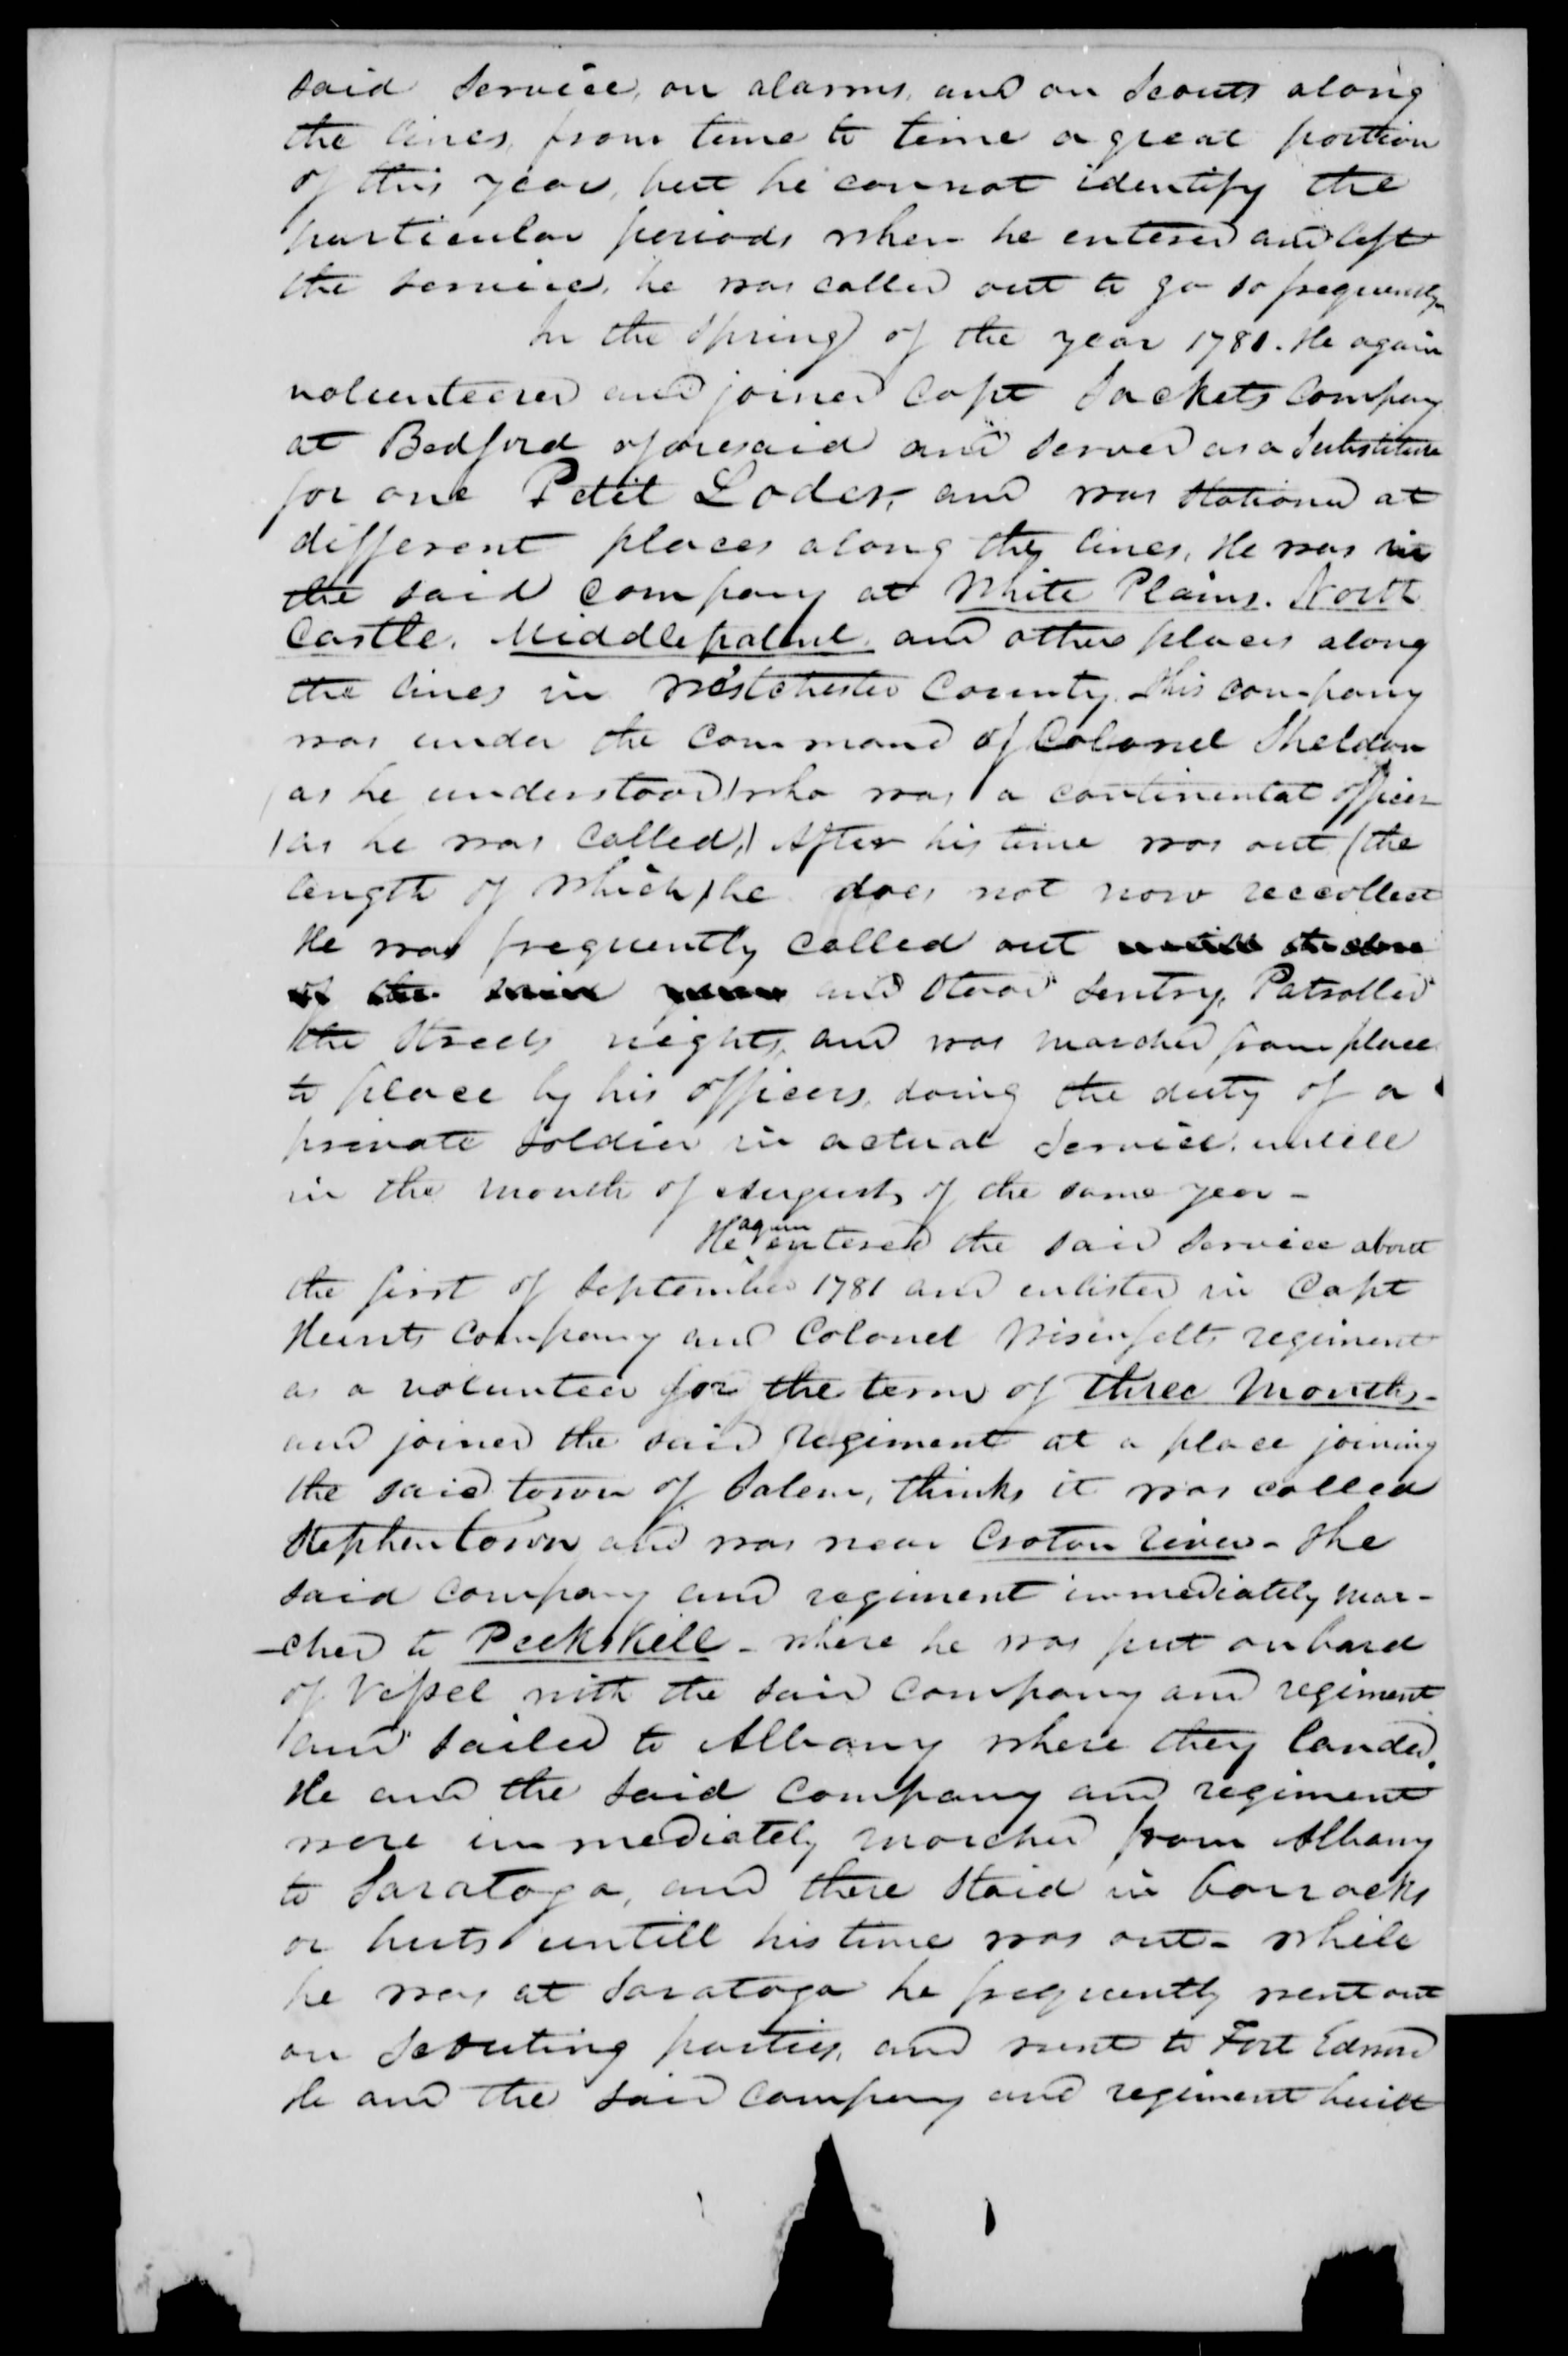 said service, on alarms, and on scouts along
the lines, from time to time a great portion
of this year, but he cannot identify the
particular periods when he entered and left
the service, he was called out to go so frequently
In the spring of the year 1781. He again
volunteered and joined Capt Sackets Company
at Bedford aforesaid and served as a Substitute
for one Petit Loder, and was stationed at
different places along the lines, He was in
the said company at White Plains. North
Castle. Middlepatent. and other places along
the lines in Westchester County. This company
was under the command of Colonel Sheldon
(as he understood) who was a continental officer
(as he was called,) After his time was out (the
length of which) he does not now reccollect
He was frequently called out untill the close
of the said year and stood sentry, Patrolled
the streets nights, and was marched from place
to place by his officers, doing the duty of a
private soldier in actual service. untill
in the month of August, of the same year -
He again entered the said service about
the first of September 1781 and enlisted in Capt
Hunts Company and Colonel Wisenfelts regiment
as a volunteer for the term of three months -
and joined the said Regiment at a place joining
the said town of Salem, thinks it was called
Stephentown and was near Croton river - The
said company and regiment immediately mar-
-ched to Peekskill - where he was put on board
of Vessel with the said company and regiment
and sailed to Albany where they landed.
He and the said company and regiment
were immediately marched from Albany
to Saratoga, and there staid in barracks
or huts untill his time was out - while
he was at Saratoga he frequently went out
on scouting parties, and went to Fort Edward
He and the said company and regiment built